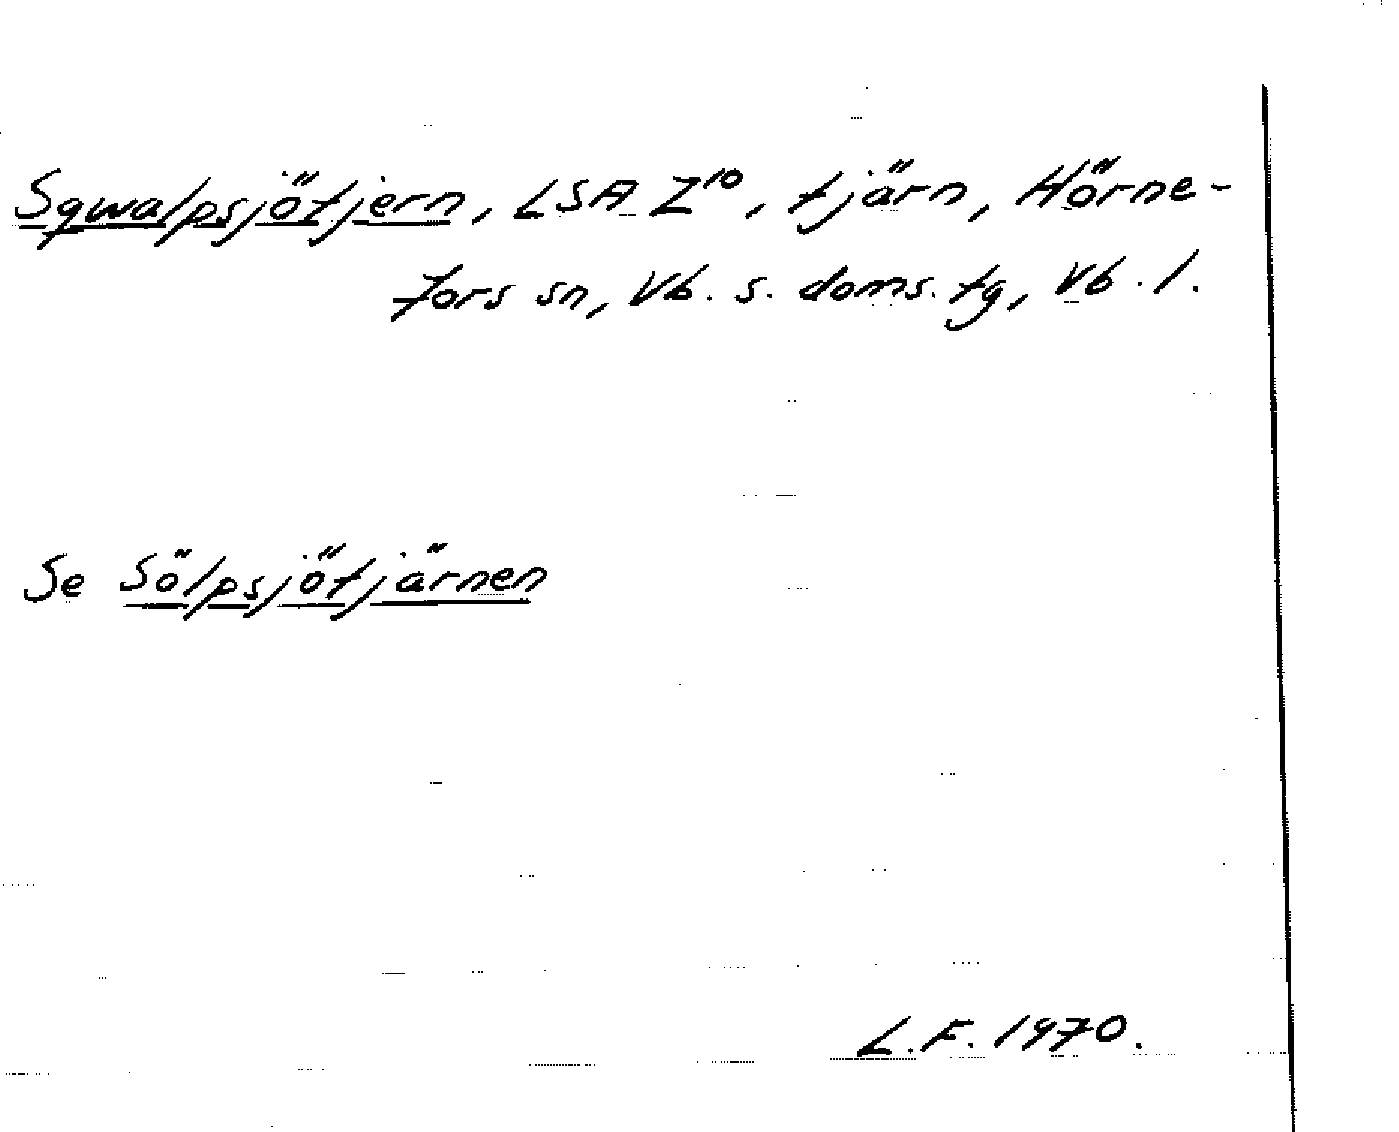 Sqwalpsjötjern, LSA Z¹⁰, tjärn, Hörne-
fors sn, Vb. s. doms. tg, Vb. l.
Se Sölpsjötjärnen
L.F. 1970.